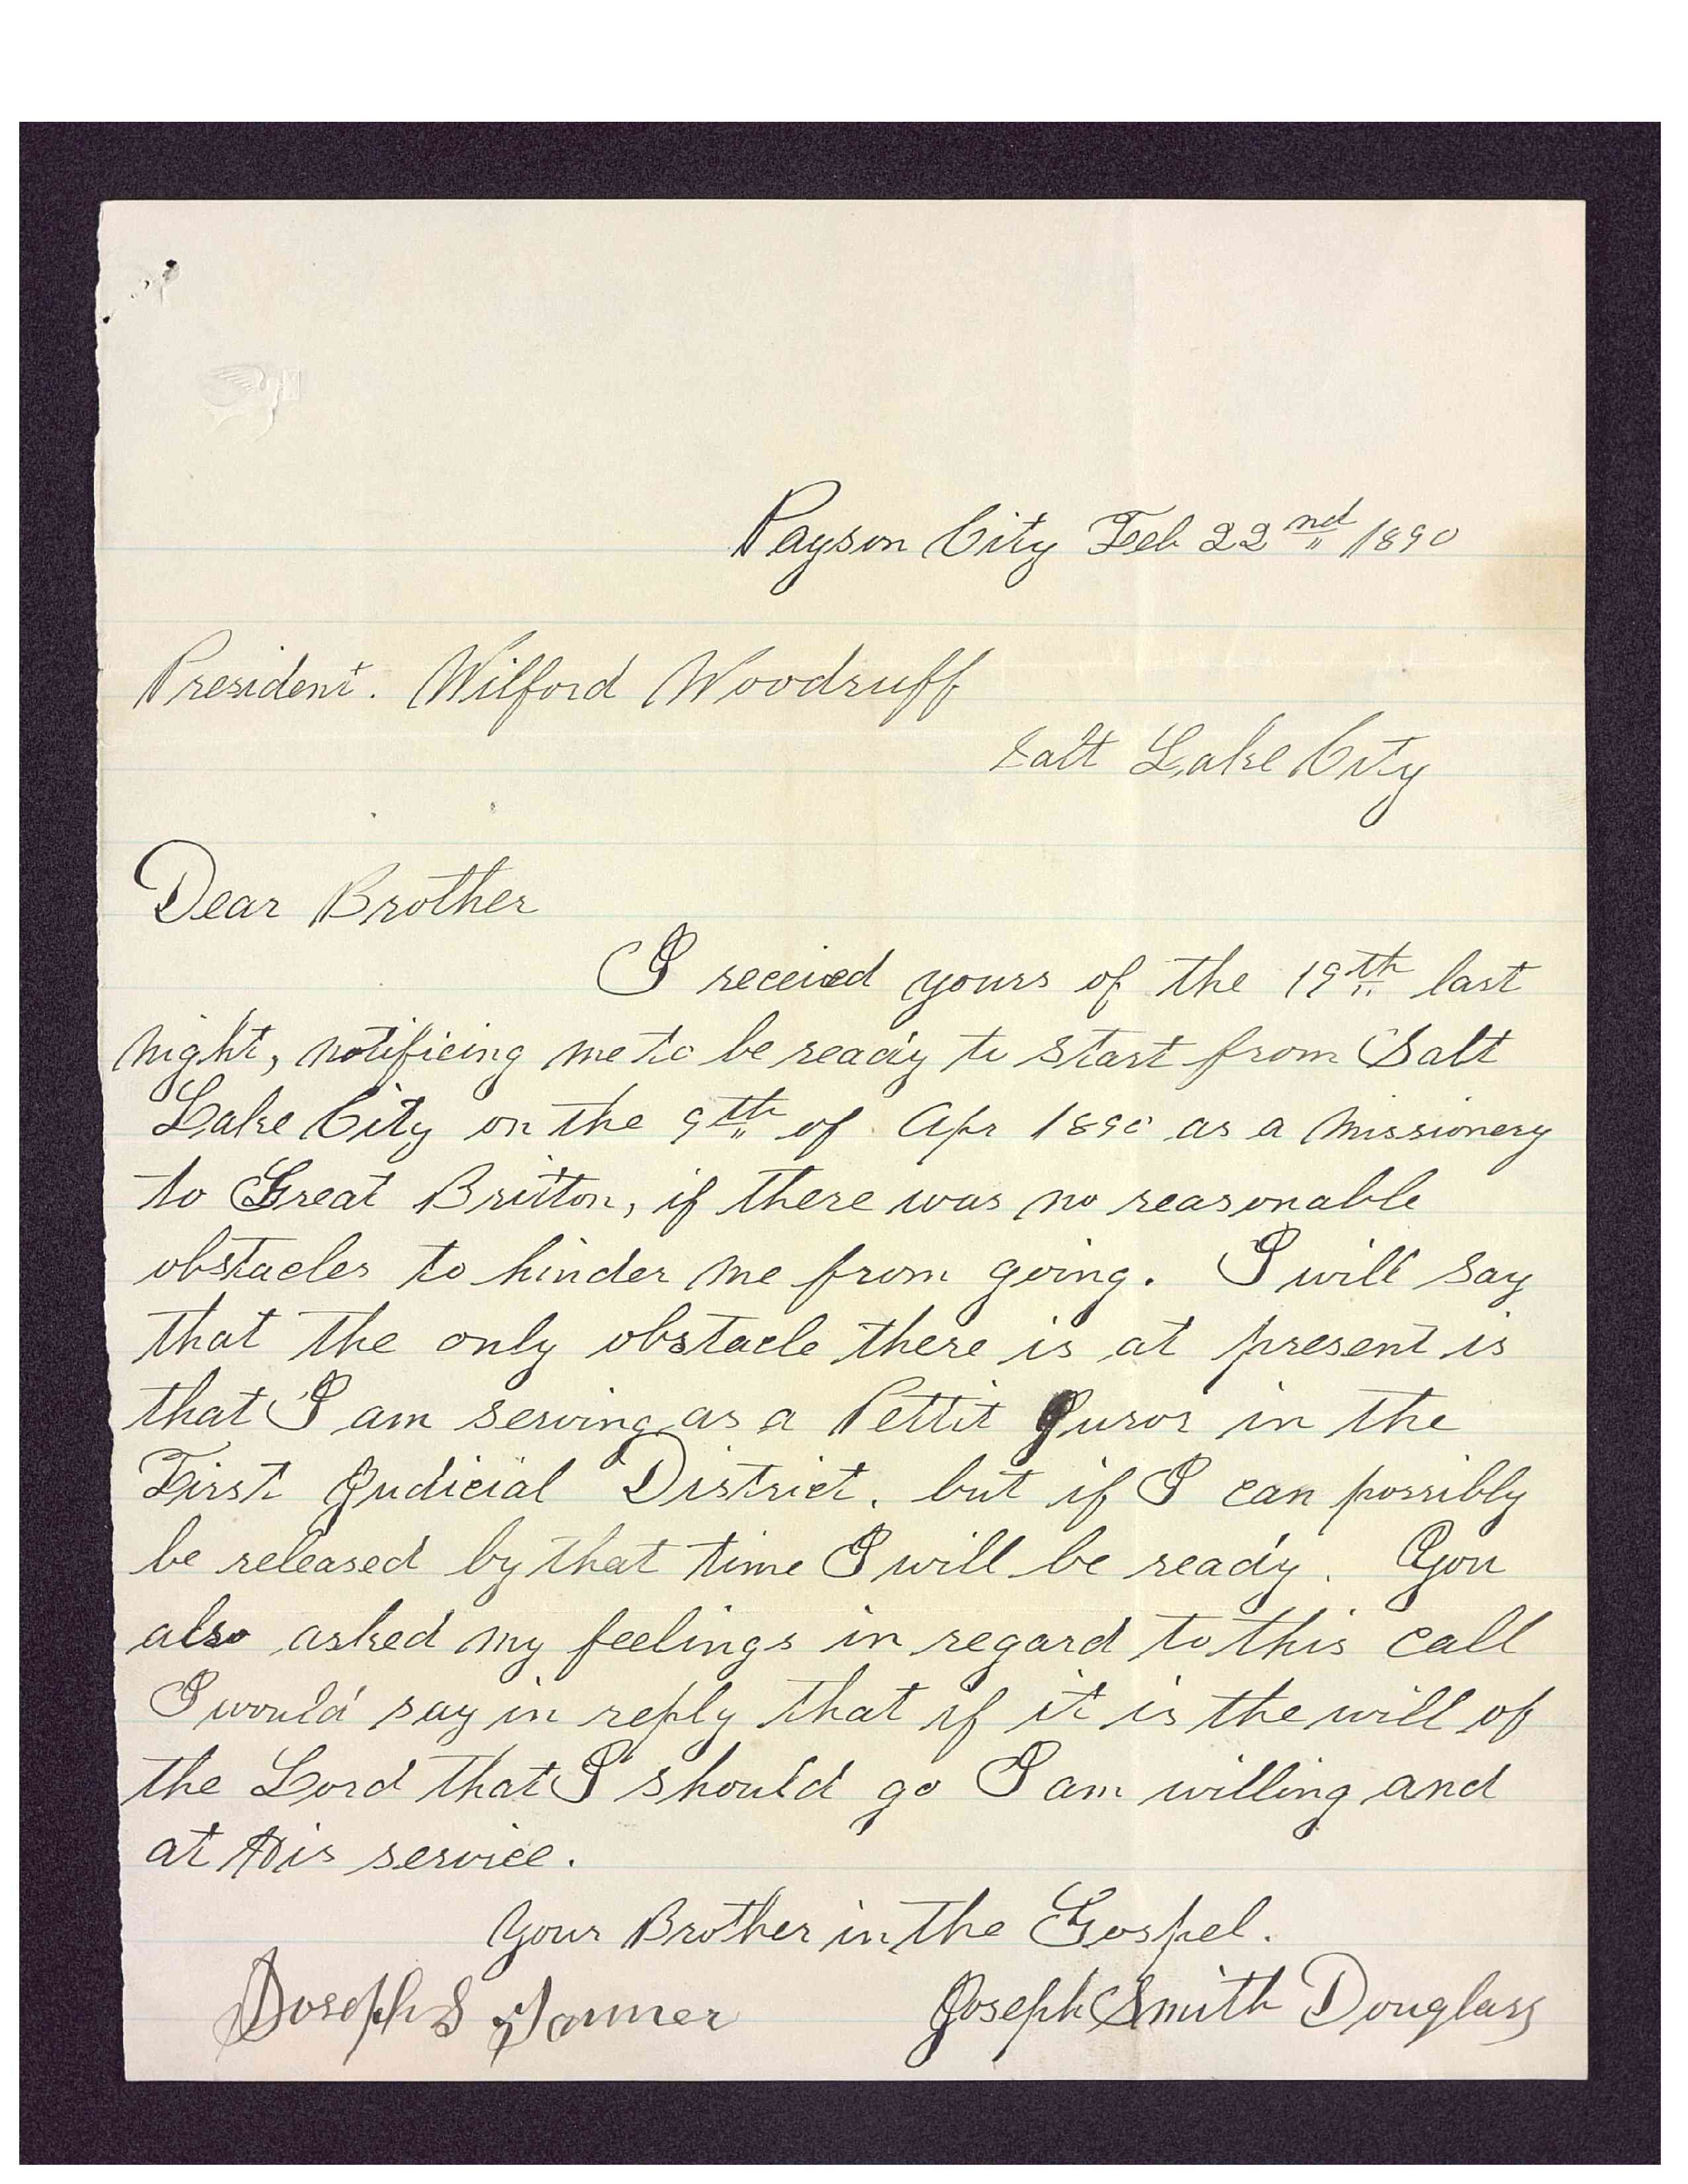 Payson City Feb 22nd 1890
President. Wilford Woodruff
Salt Lake City
Dear Brother
I received yours of the 19th last
night, notificing me to be ready to start from Salt
Lake City on the 9th of Apr 1890 as a missionery
to Great Britton, if there was no reasonable
obstacles to hinder me from going. I will say
that the only obstacle there is at present is
that I am serving as a Pettit Juror in the
First Judicial District. but if I can possibly
be released by that time I will be ready. You
also asked my feelings in regard to this call
I would say in reply that if it is the will of
the Lord that I should go I am willing and
at His service.
Your Brother in the Gospel.
Joseph S Tanner Joseph Smith Douglass